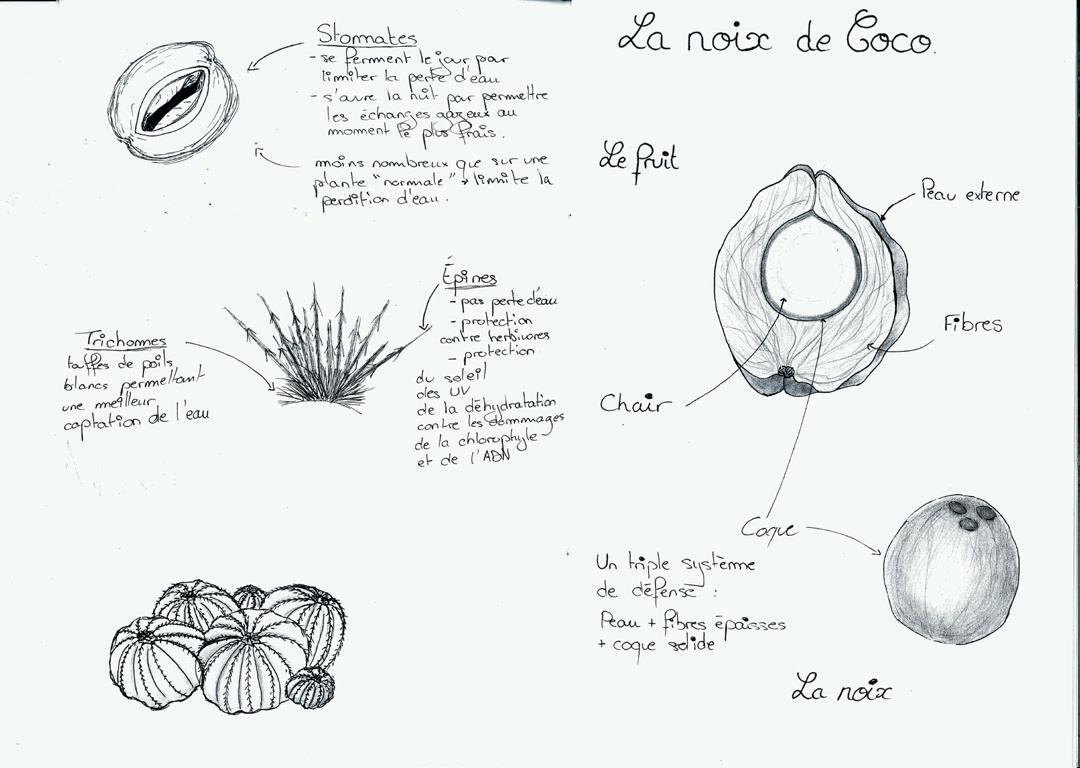 Stommates
- se ferment le jour par
limiter la perte d'eau
- s'ouvre la nuit par permettre
les échanges gazeux au
moment le plus frais.
moins nombreux que sur une
plante "normale" → limite la
perdition d'eau.
Épines
- pas perte d'eau
- protection
contre herbivores
- protection
du soleil
des UV
de la déhydratation
contre les dommages
de la chlorophyle
et de l'ADN
Trichomes
touffes de poils
blancs permettant
une meilleur
captation de l'eau
La noix de Coco.
Le fruit
Peau externe
Fibres
Chair
Coque
Un triple système
de défense :
Peau + fibres épaisses
+ coque solide
La noix